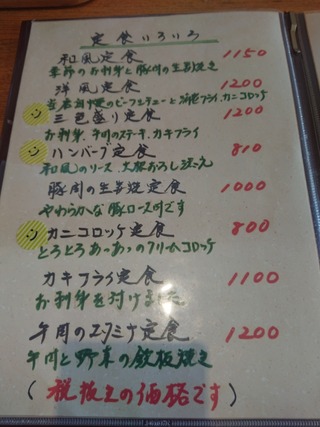 定食いろいろ
和風定食 1150
季節のお刺身と豚肉の生姜焼き
洋風定食 1200
ビーフシチューと海老フライ、カニコロッケ
三色盛り定食 1200
お刺身、牛肉のステーキ、カキフライ
ハンバーグ定食 810
和風のソース、大根おろし添え
豚肉の生姜焼定食 1000
やわらかな豚ロース肉です
カニコロッケ定食 800
とろとろあつあつのクリームコロッケ
カキフライ定食 1100
お刺身を付けました
牛肉のスタミナ定食 1200
牛肉と野菜の鉄板焼き
(税抜きの価格です)